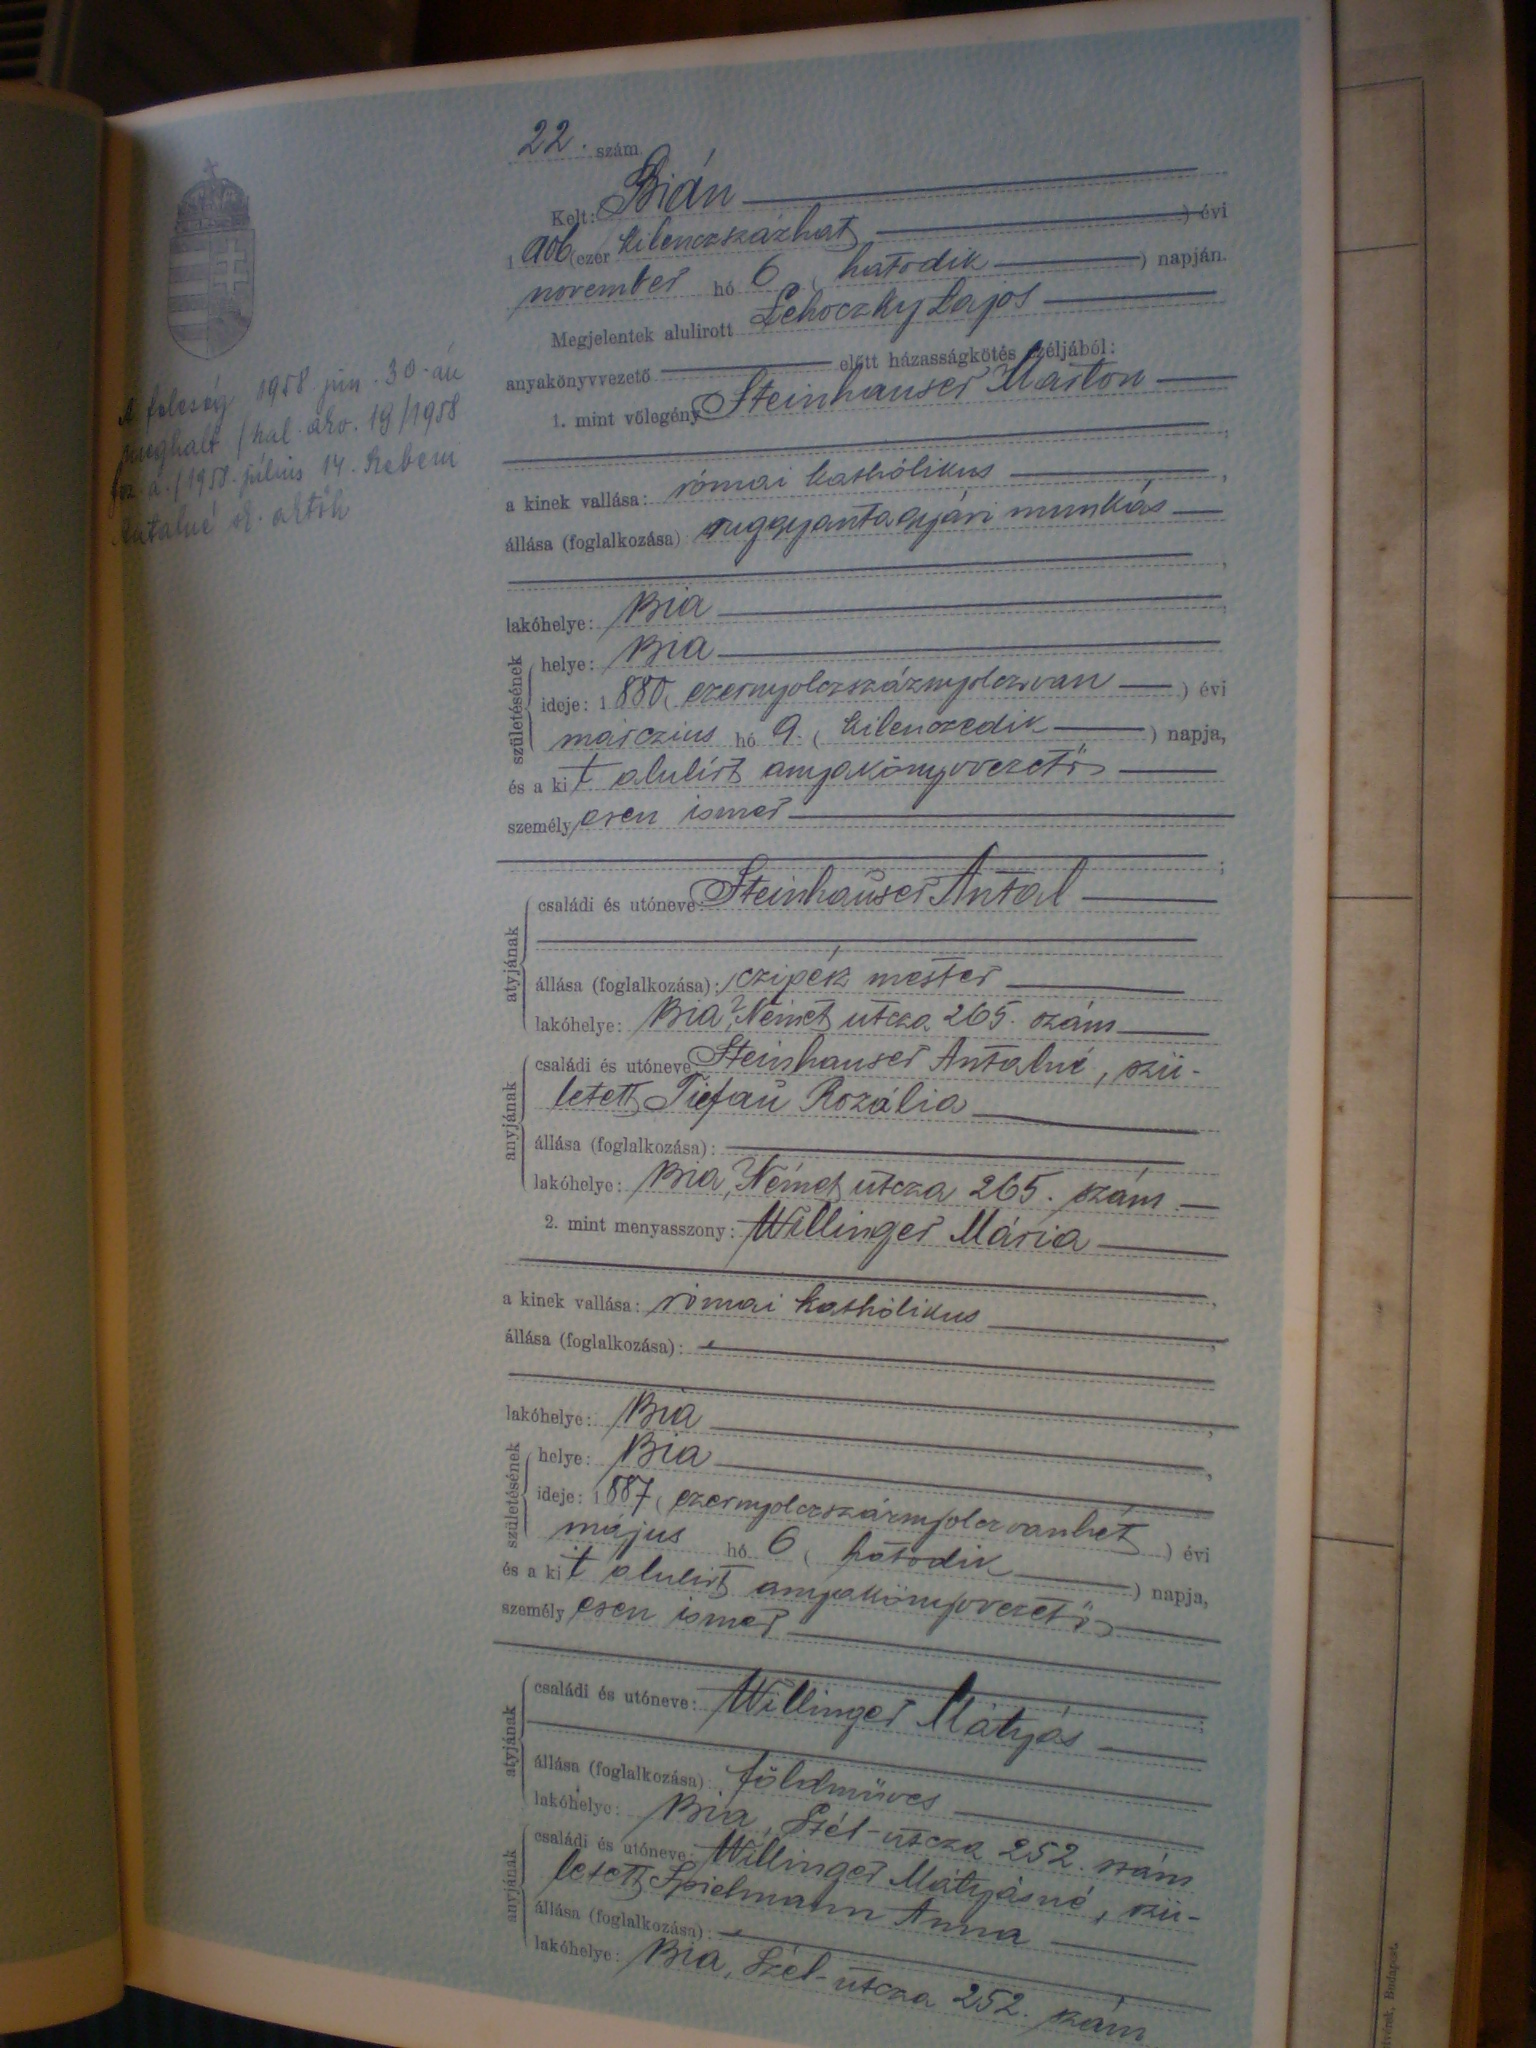 22. szám
Kelt: Bián
1906 (ezer kilenczszázhat) évi
november hó 6 (hatodik) napján.
Megjelentek alulirott Lehoczky Lajos
anyakönyvvezető előtt házasságkötés céljából:
1. mint völegény Steinhauser Márton
a kinek vallása: római katholikus
állása (foglalkozása) ruggyantagyári munkás
lakóhelye: Bia
születésének
helye: Bia
ideje: 1880 (ezernyolczszáznyolczvan) évi
márczius hó 9. (kilenczedik) napja,
és a kit alulirt anyakönyvvezető
személyesen ismer
atyjának
családi és utóneve: Steinhauser Antal
állása (foglalkozása): czipész mester
lakóhelye: Bia, Német utcza 265. szám
anyjának
családi és utóneve: Steinhauser Antalné, szü-
letett Tiefau Rozália
állása (foglalkozása):
lakóhelye: Bia, Német utcza 265. szám
2. mint menyasszony: Willinger Mária
a kinek vallása: római katholikus
állása (foglalkozása):
lakóhelye: Bia
születésének
helye: Bia
ideje: 1887 (ezernyolczszáznyolczvanhét) évi
május hó 6 (hatodik) napja,
és a kit alulirt anyakönyvvezető
személyesen ismer
atyjának
családi és utóneve: Willinger Mátyás
állása (foglalkozása): földmüves
lakóhelye: Bia, Szél-utcza 252. szám
anyjának
családi és utóneve: Willinger Mátyásné, szü-
letett Spielmann Anna
állása (foglalkozása):
lakóhelye: Bia, Szél-utcza 252. szám
A feleség 1958. jún. 30-án
meghalt (hal. akv. 19/1958
1958. július 14.
Antalné
Budapest.